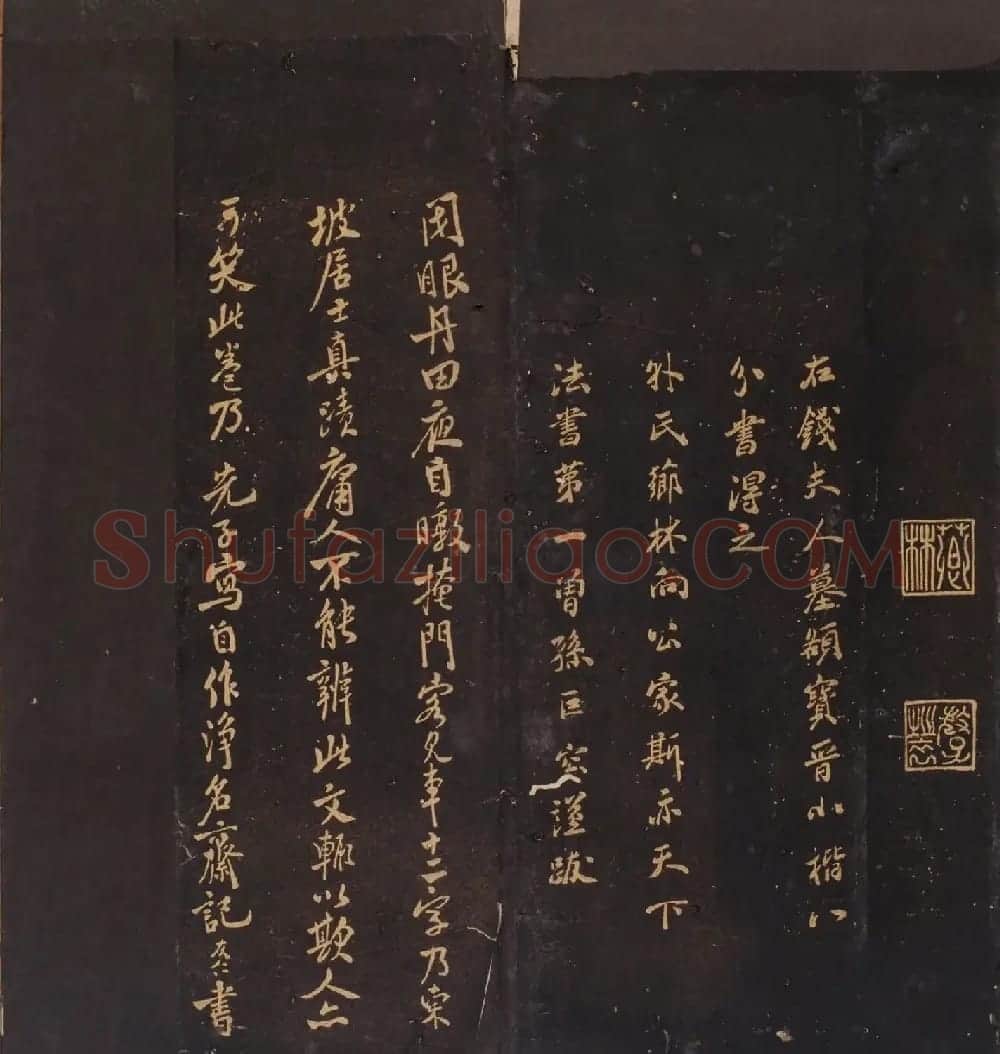 薌林
右錢夫人墓額寶晉小楷八
分書得之
外氏薌林向公家斯亦天下
法書第一曾孫巨謹跋
眼丹田夜自暾掩門客車十二字乃東
坡居士真蹟庸人不能辨此文輒以欺人亦
可笑此卷乃先子寫自作淨名齋記友仁書
Shufaziliao.COM